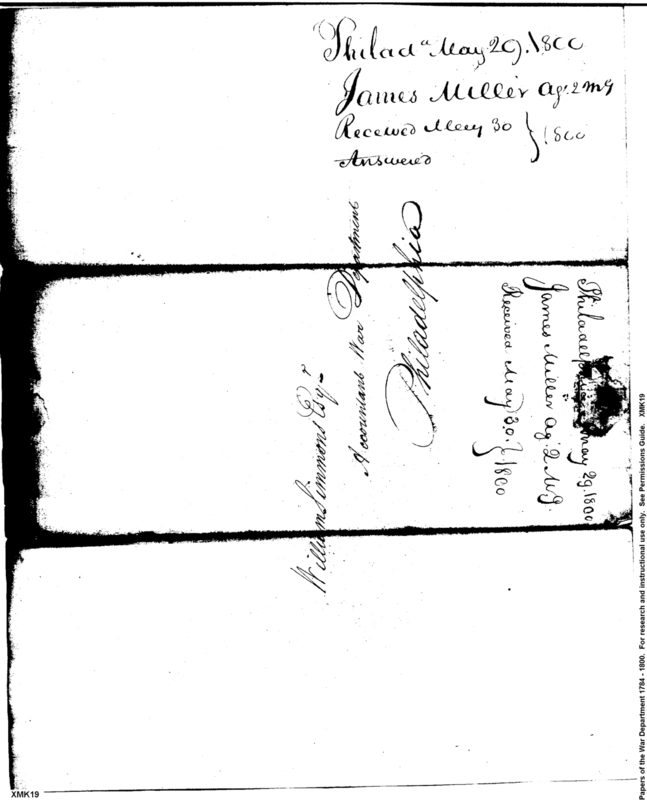 Philad.a May 29. 1800
James Miller Ag. 2 M G
Received May 30 } 1800
Answered
William Simmons Esqr
Accountant War Department
Philadelphia
Philadelphia May 29. 1800
James Miller Ag. 2 M.G.
Received May 30. } 1800
Papers of the War Department 1784 - 1800. For research and instructional use only. See Permissions Guide. XMK19
XMK19